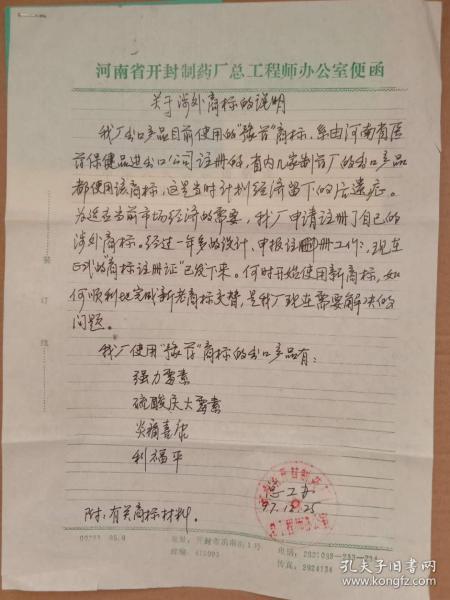 河南省开封制药厂总工程师办公室便函
关于涉外商标的说明
我厂出口产品目前使用的"豫药"商标，系由河南省医
药保健品进出口公司注册的，省内几家制药厂的出口产品
都使用该商标，这是当时计划经济留下的后遗症。
为适应当前市场经济的需要，我厂申请注册了自己的
涉外商标。经过一年多的设计、申报注册工作，现在
正式的"商标注册证"已发下来。何时开始使用新商标，如
何顺利地完成新老商标交替，是我厂现在需要解决的
问题。
我厂使用"豫药"商标的出口产品有：
强力霉素
硫酸庆大霉素
炎痛喜康
利福平
总工办
97.12.25
附：有关商标材料。
装订线
电话：
传真：2924134
孔夫子旧书网